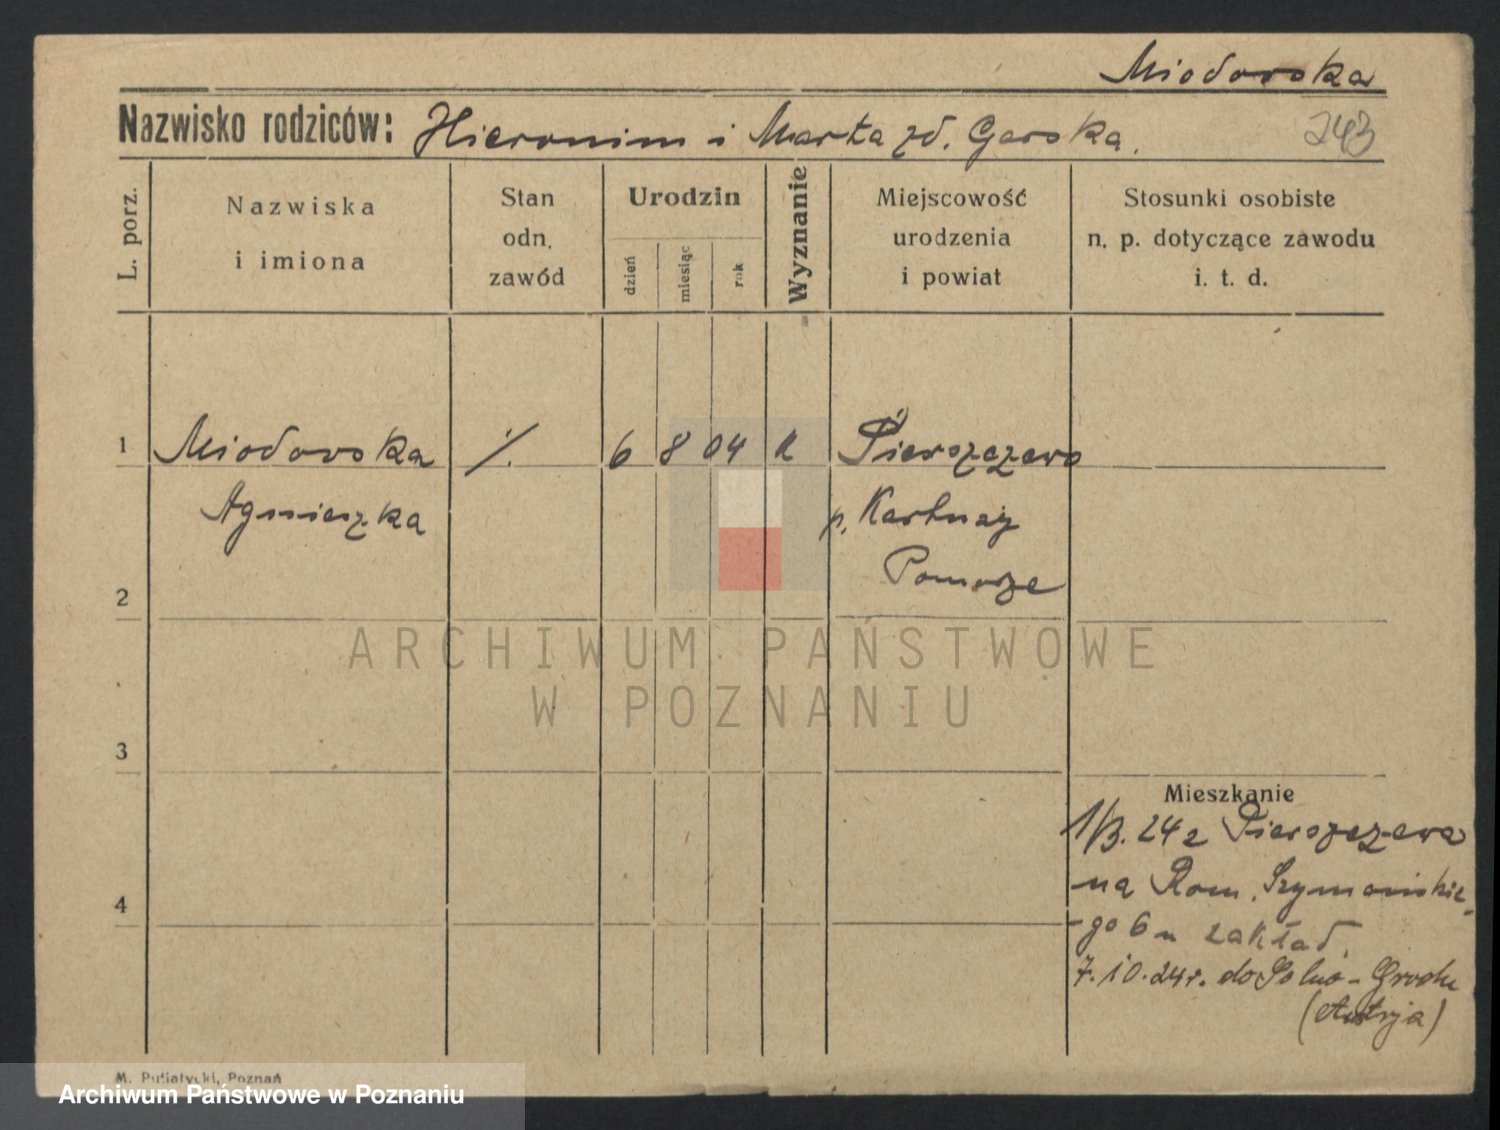 Miodovska
Nazwisko rodziców: Hieronim i Marta zd. Garska.
243
L. porz.
Nazwiska
i imiona
Stan
odn.
zawód
Urodzin
dzień
miesiąc
rok
Wyznanie
Miejscowość
urodzenia
i powiat
Stosunki osobiste
n. p. dotyczące zawodu
i. t. d.
1 Miodovska ./. 6 8 04 k Pierszczewo
Agnieszka p. Kartuzy
Pomorze
2
ARCHIWUM PAŃSTWOWE
W POZNANIU
3
Mieszkanie
1/3. 24 z Pierszczewa
na Rom. Szymańskie-
4
go 6 u zakład.
7.10.24r. do
(Austrja)
M. Putiatycki, Poznań
Archiwum Państwowe w Poznaniu